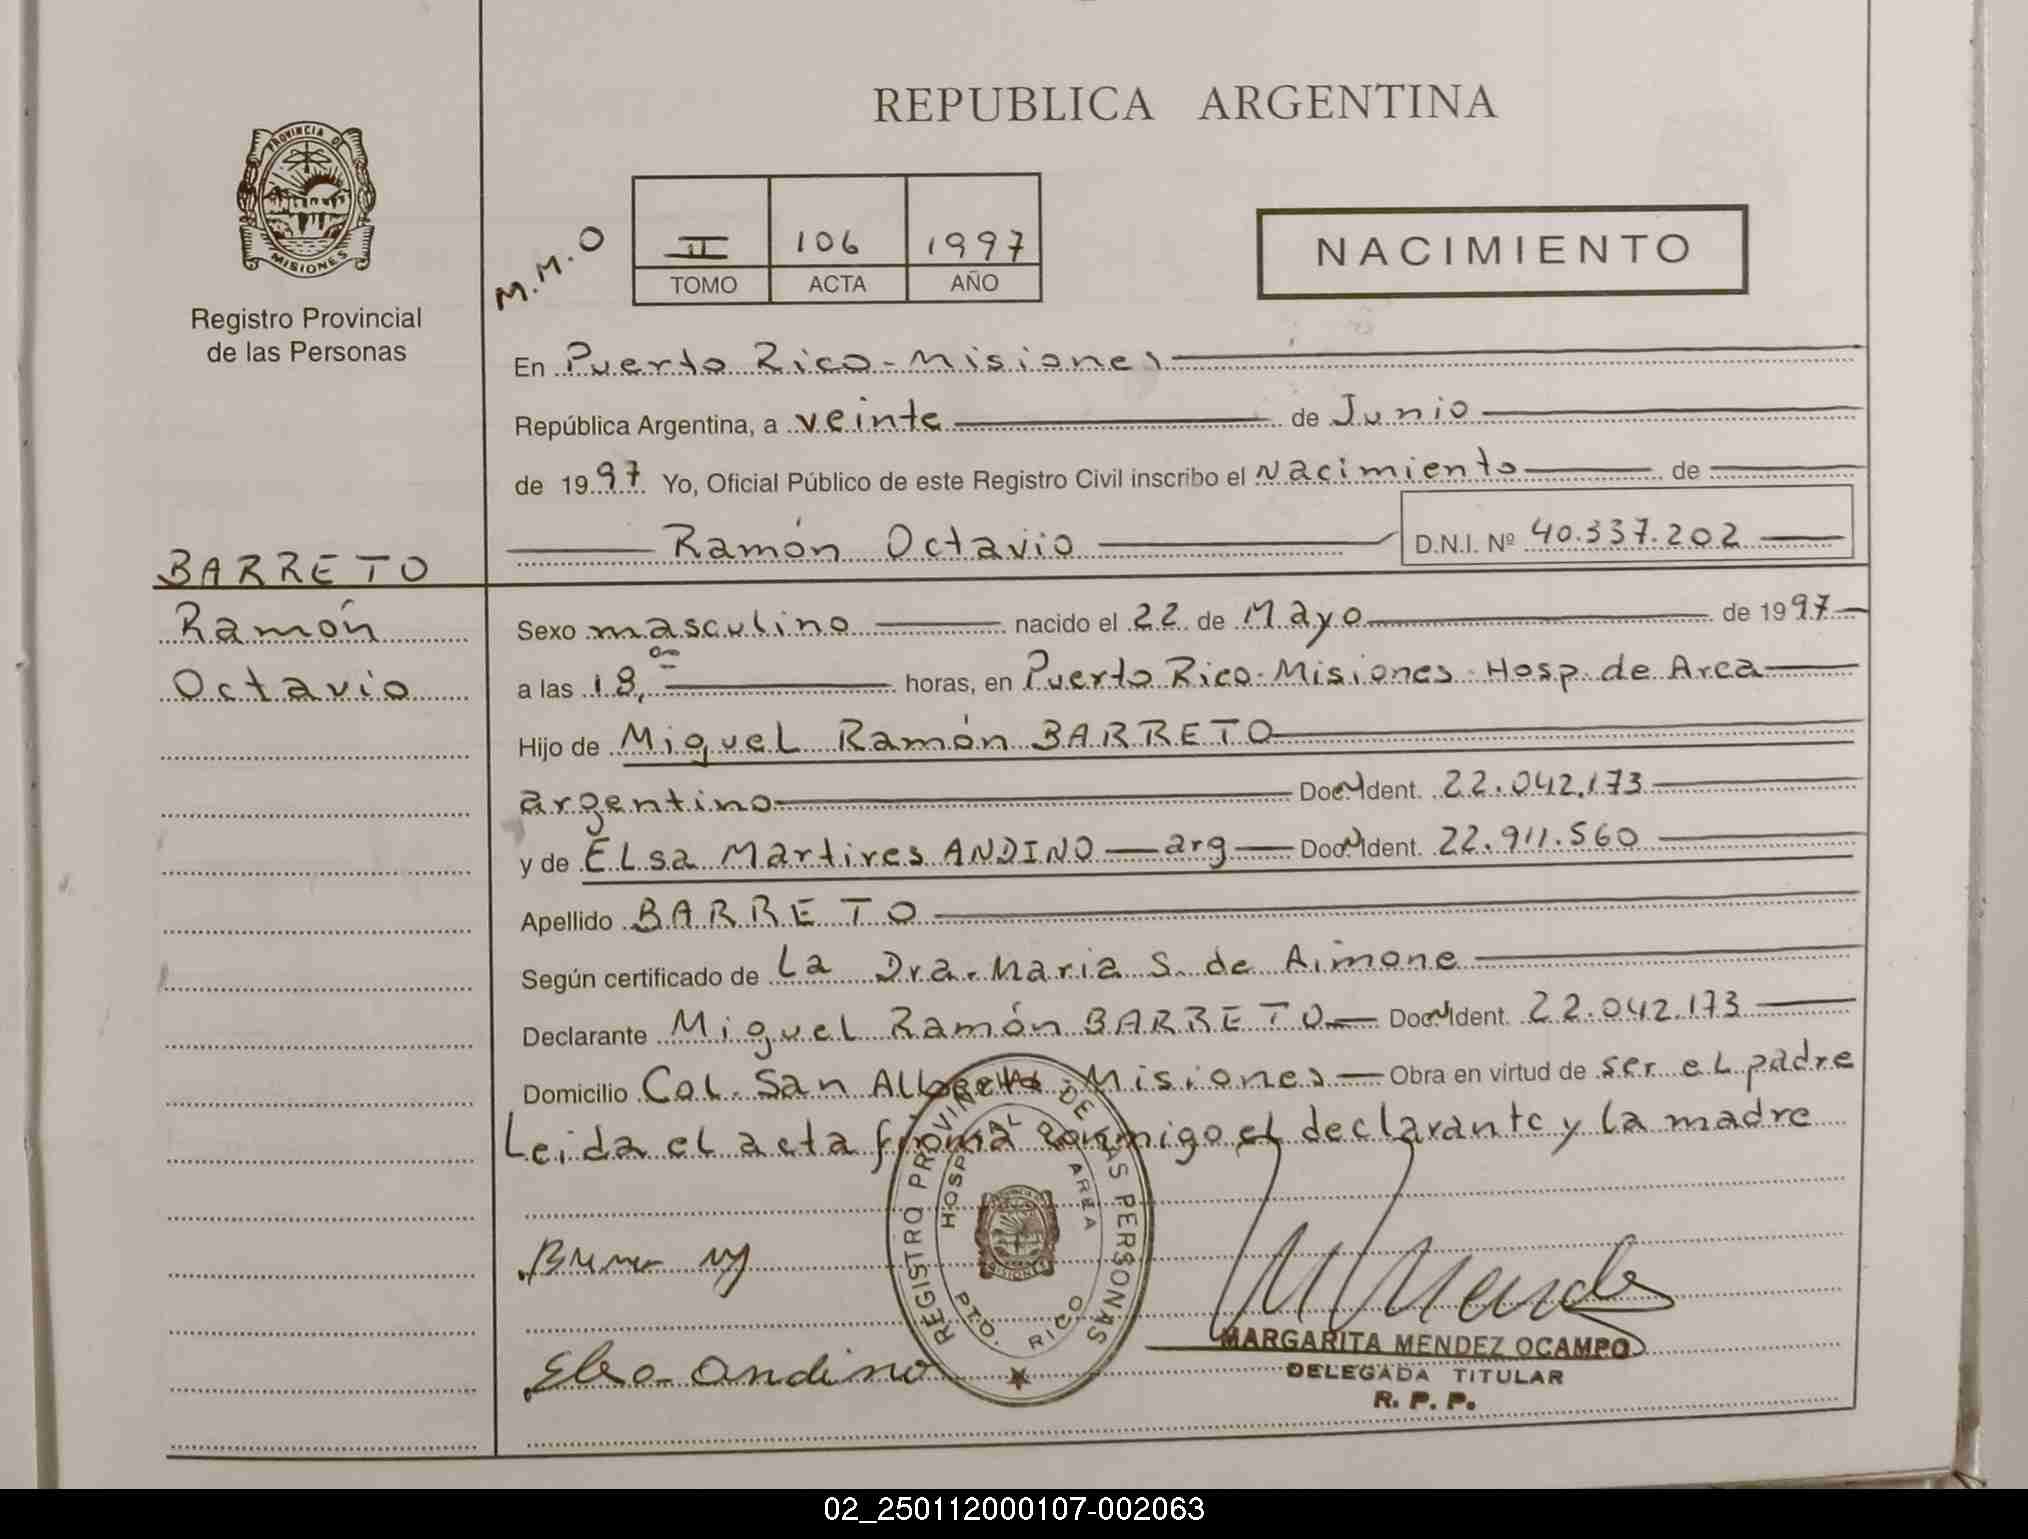 REPUBLICA ARGENTINA
PROVINCIA DE
MISIONES
Registro Provincial
de las Personas
M.M.O
II 106 1997
TOMO ACTA AÑO
NACIMIENTO
En Puerto Rico - Misiones
República Argentina, a veinte de Junio
de 1997 Yo, Oficial Público de este Registro Civil inscribo el Nacimiento de
Ramón Octavio D.N.I. Nº 40.337.202
BARRETO
Ramón
Octavio
Sexo masculino nacido el 22 de Mayo de 1997
a las 18,00 horas, en Puerto Rico - Misiones - Hosp. de Area
Hijo de Miguel Ramón BARRETO
argentino Doc. Ident. 22.042.173
y de ELsa Martires ANDINO - arg - Doc. Ident. 22.911.560
Apellido BARRETO
Según certificado de La Dra. Maria S. de Aimone
Declarante Miguel Ramón BARRETO Doc. Ident. 22.042.173
Domicilio Col. San Alberto - Misiones - Obra en virtud de ser eL padre
Leida eL acta firma conmigo eL declarante y la madre
REGISTRO PROVINCIAL DE LAS PERSONAS
HOSPITAL DE AREA
PTO. RICO
MISIONES
M Mendez
Elsa Andino
MARGARITA MENDEZ OCAMPO
DELEGADA TITULAR
R. P. P.
02_250112000107-002063